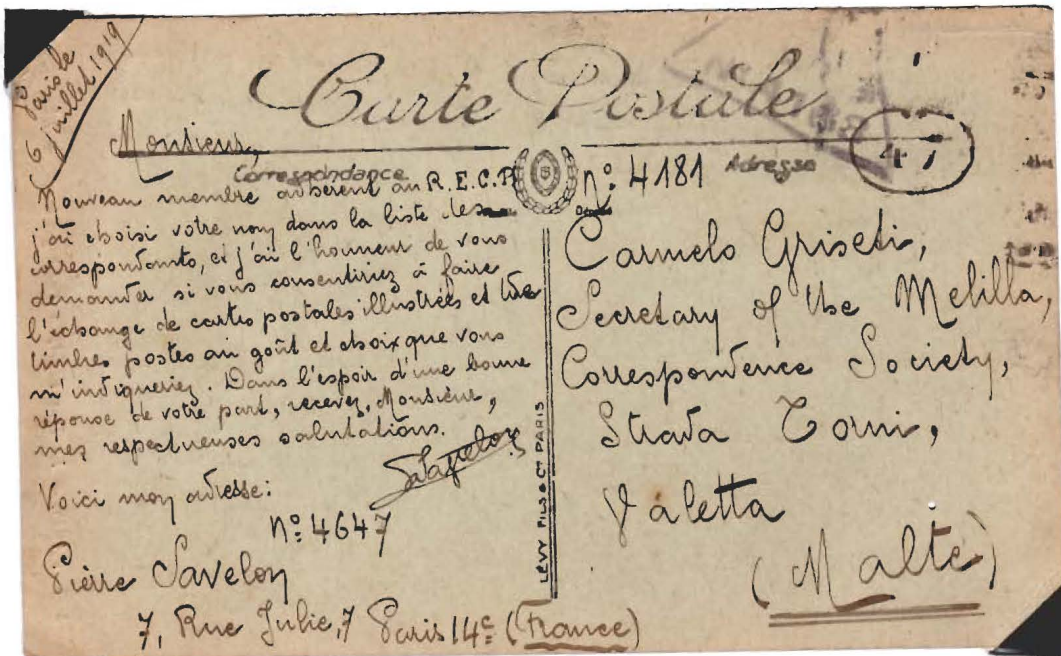 Paris le
6 juillet 1919
Carte Postale
Monsieur,
Correspondance
Adresse
Nouveau membre adhérent au R.E.C.P.
j'ai choisi votre nom dans la liste des
correspondants, et j'ai l'honneur de vous
demander si vous consentiriez à faire
l'échange de cartes postales illustrées et de
timbres postes au goût et choix que vous
m'indiqueriez. Dans l'espoir d'une bonne
réponse de votre part, recevez, Monsieur,
mes respectueuses salutations.
Voici mon adresse:
N° 4647
Pierre Savelon
7, Rue Julie, 7 Paris 14e (France)
LÉVY FILS & Cie PARIS
N° 4181
47
Carmelo Griseti,
Secretary of the Melilla,
Correspondence Society,
Strada Torni,
Valetta
(Malte)